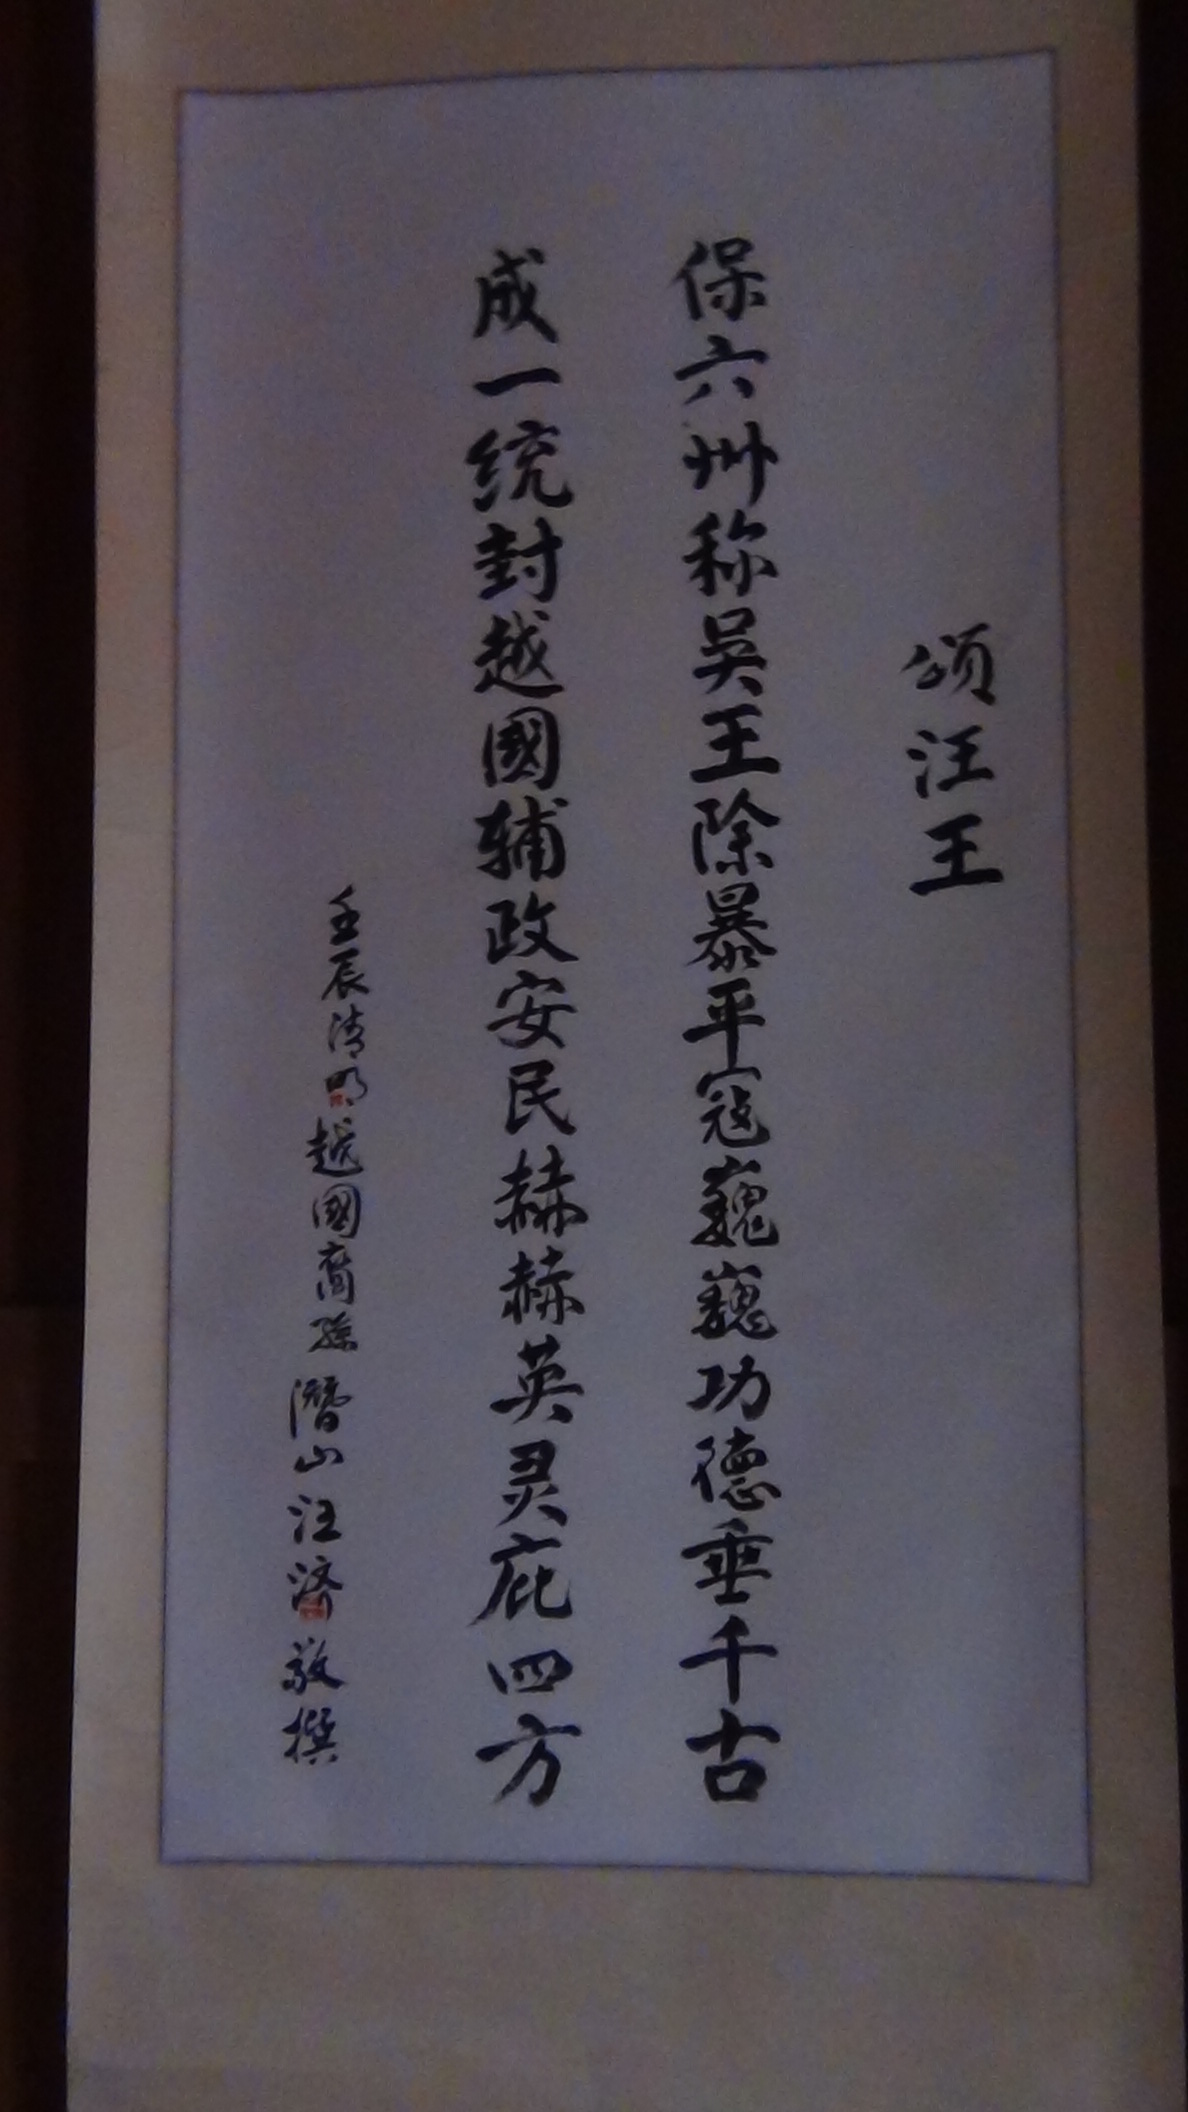 颂汪王
保六州称吴王除暴平寇巍巍功德垂千古
成一统封越國辅政安民赫赫英灵庇四方
壬辰清明越國裔孫潛山汪济敬撰